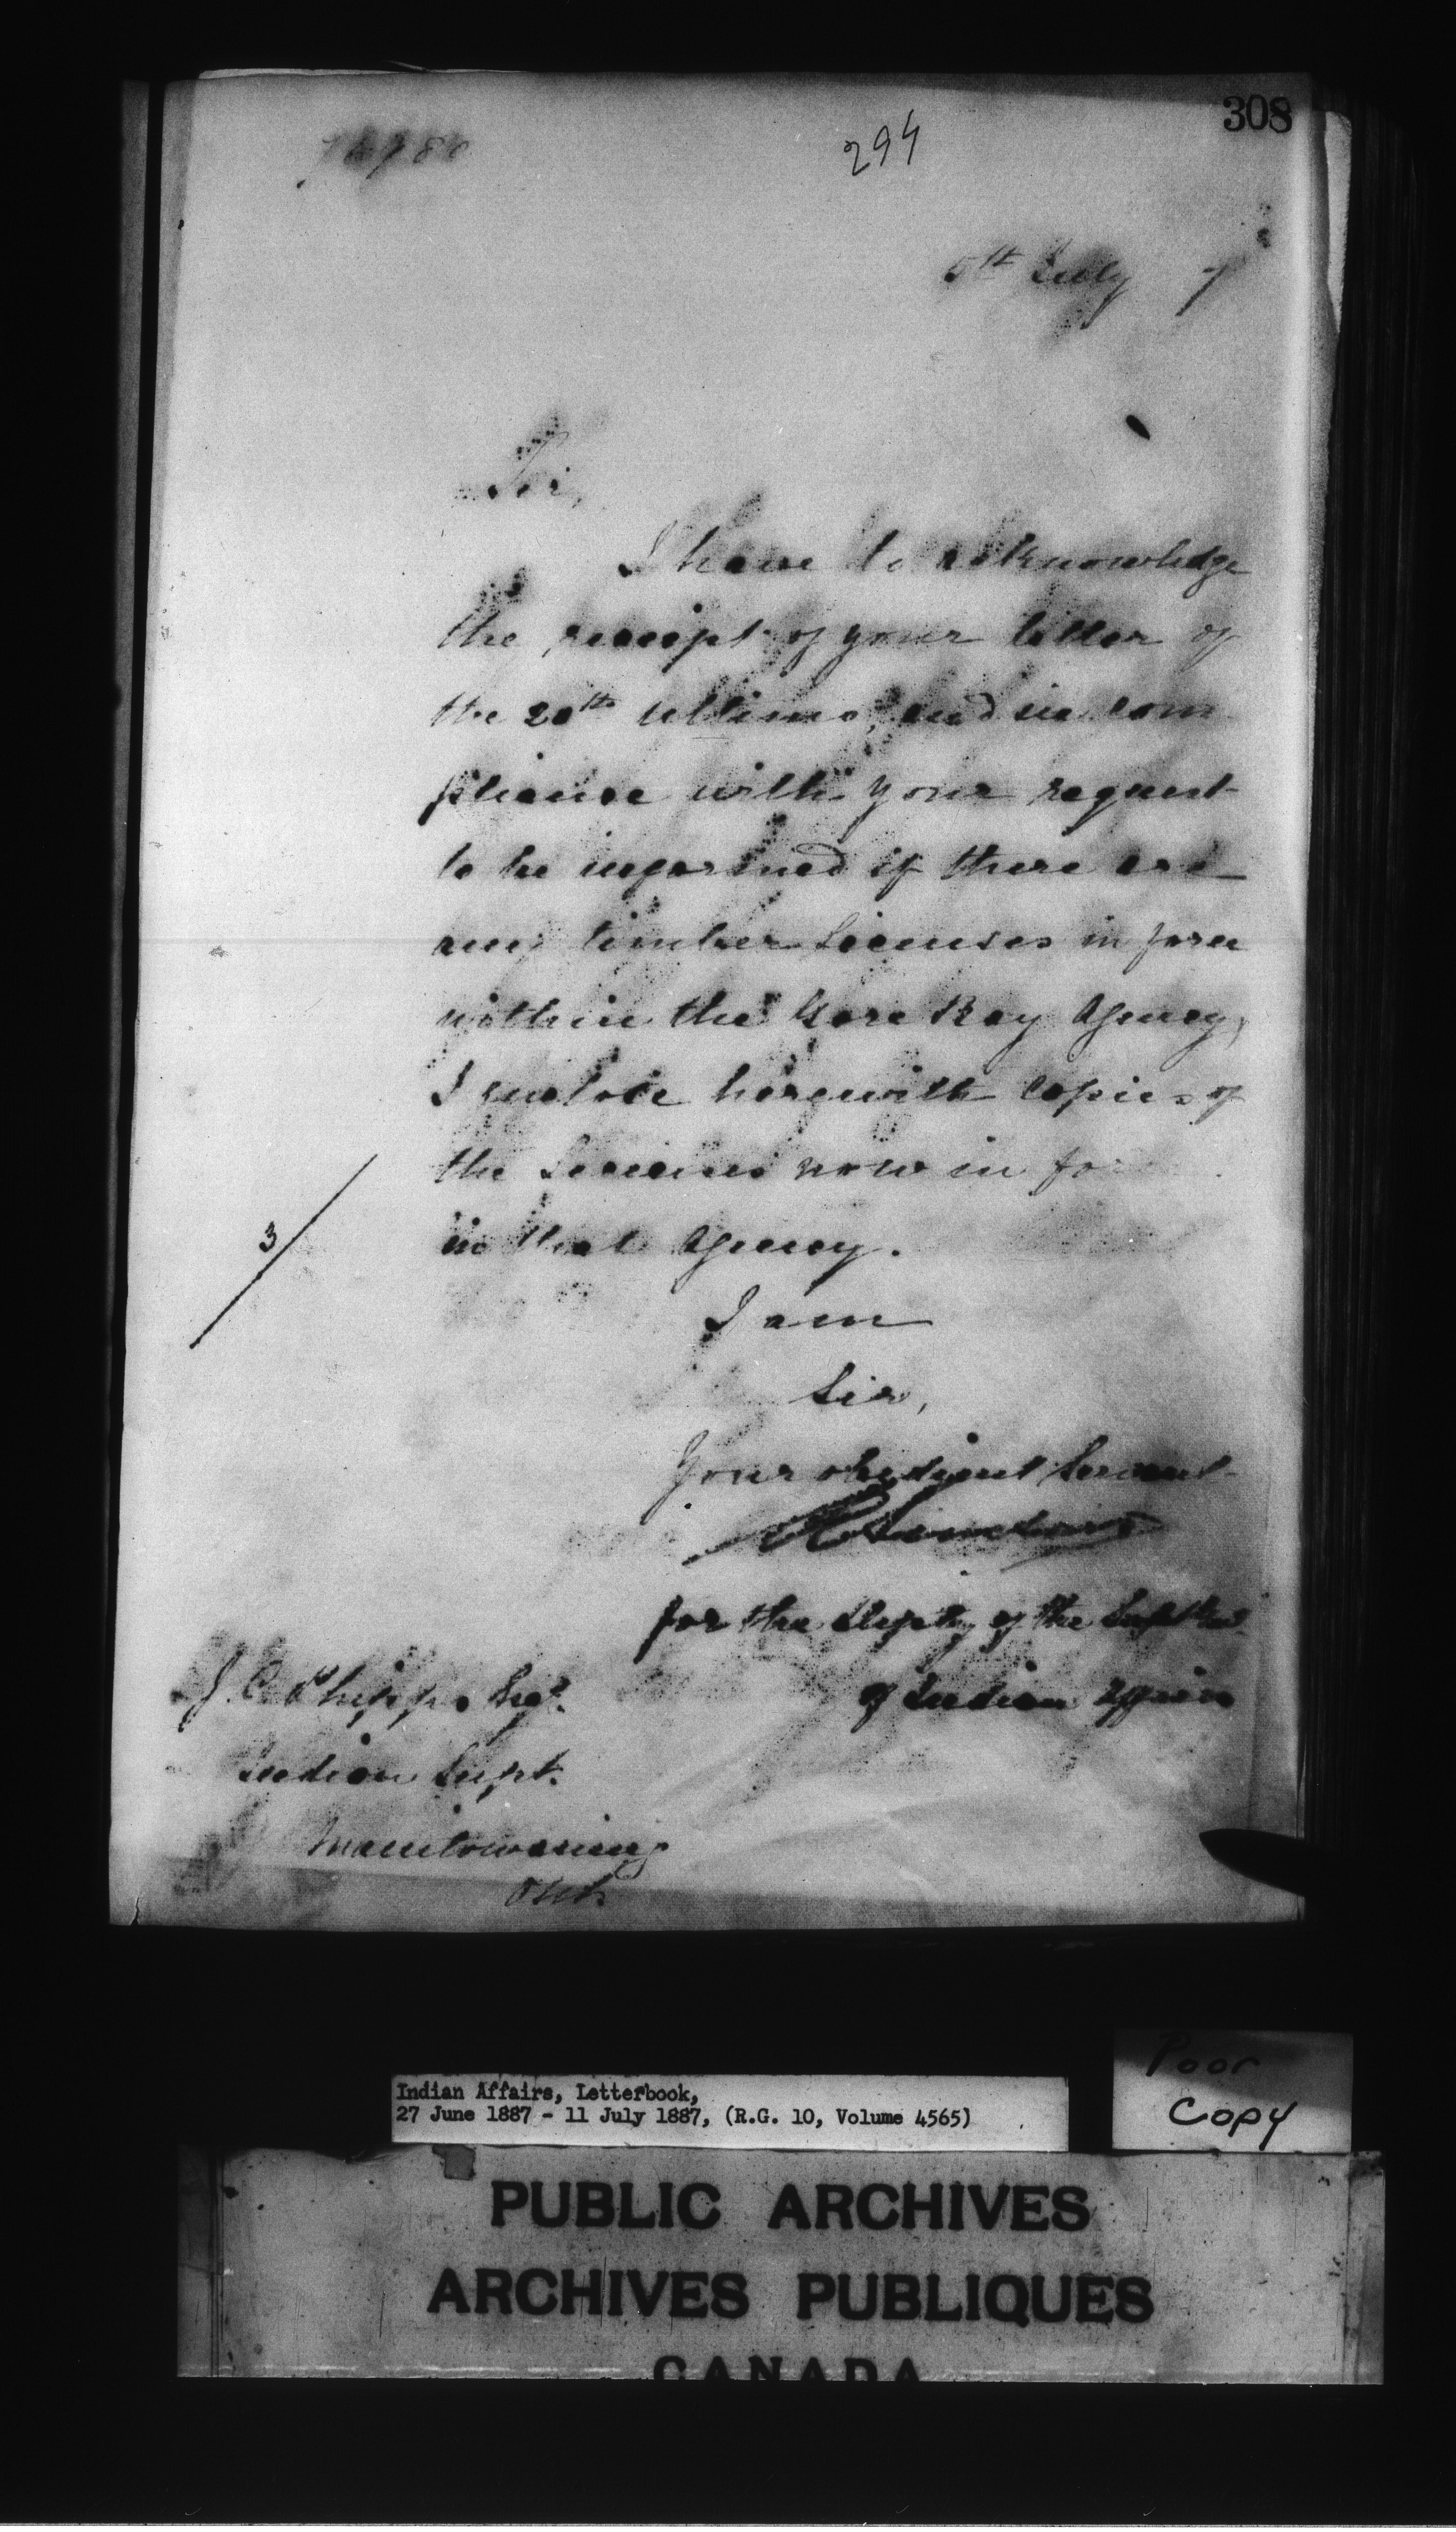 308
294
5th July 7
Sir,
I have to acknowledge
the receipt of your letter of
the 20th ultimo, and in com
pliance with your request
to be informed if there are
any timber licenses in force
within the Gore Bay Agency,
I enclose herewith copies of
the licenses now in fo
in that Agency.
3/
I am
Sir,
Your obedient Servant
for the Deputy of the Supt Genl
of Indian Affairs
J. C. Phipps Esqr.
Indian Supt.
Manitowaning
Ont.
Poor
Copy
Indian Affairs, Letterbook,
27 June 1887 - 11 July 1887, (R.G. 10, Volume 4565)
PUBLIC ARCHIVES
ARCHIVES PUBLIQUES
CANADA